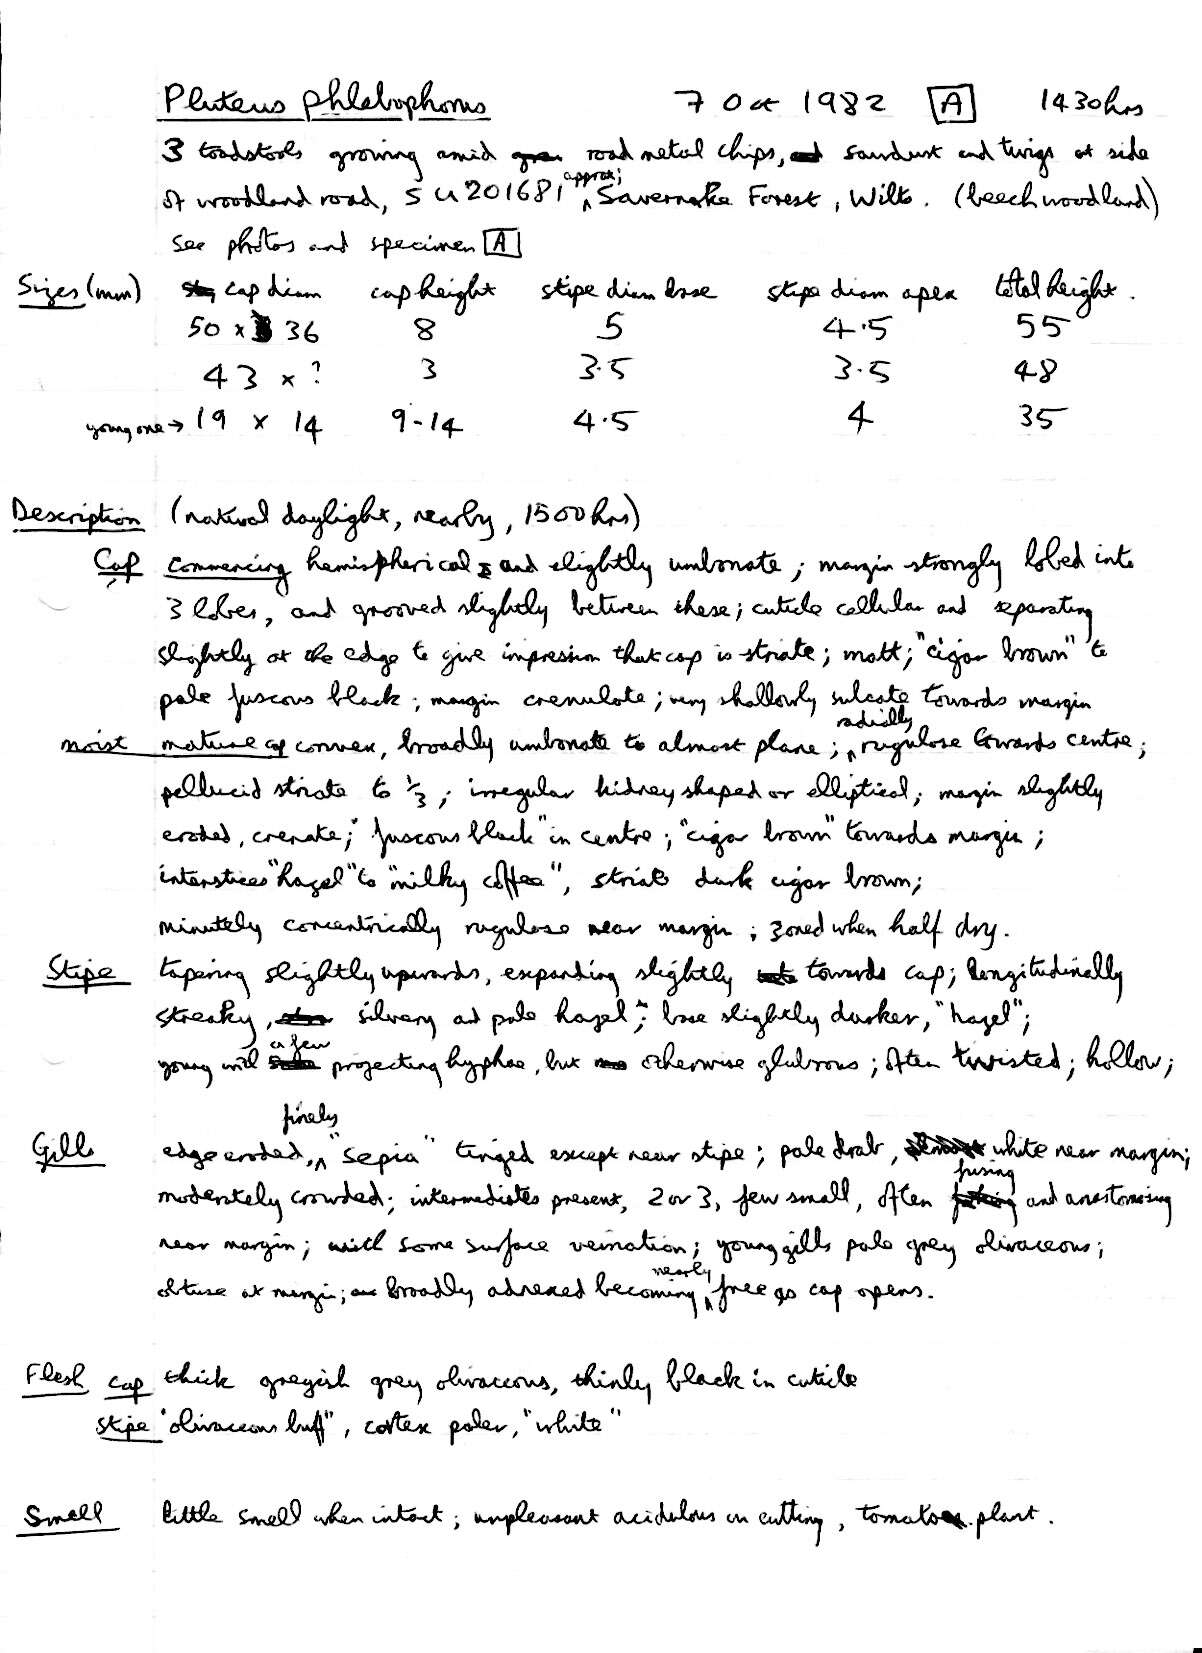 Pluteus phlebophorus 7 Oct 1982 [A] 1430hrs
3 toadstools growing amid road metal chips, sawdust and twigs at side
of woodland road, SU201681 approx; Savernake Forest, Wilts. (beech woodland)
See photos and specimen [A]
Sizes (mm) cap diam cap height stipe diam base stipe diam apex total height.
50 x 36 8 5 4.5 55
43 x ? 3 3.5 3.5 48
young one → 19 x 14 9-14 4.5 4 35
Description (natural daylight, nearby, 1500hrs)
Cap commencing hemispherical and slightly umbonate; margin strongly lobed into
3 lobes, and grooved slightly between these; cuticle cellular and separating
slightly at the edge to give impression that cap is striate; matt; "cigar brown" to
pale fuscous black; margin crenulate; very shallowly sulcate towards margin
moist mature cap convex, broadly umbonate to almost plane; radially rugulose towards centre;
pellucid striate to 1/3; irregular kidney shaped or elliptical; margin slightly
eroded, crenate; "fuscous black" in centre; "cigar brown" towards margin;
interstices "hazel" to "milky coffee", striate dark cigar brown;
minutely concentrically rugulose near margin; zoned when half dry.
Stipe tapering slightly upwards, expanding slightly towards cap; longitudinally
streaky, silvery and pale hazel"; base slightly darker, "hazel";
young with a few projecting hyphae, but otherwise glabrous; often twisted; hollow;
Gills edge eroded, finely "sepia" tinged except near stipe; pale drab, white near margin;
moderately crowded; intermediates present, 2 or 3, few small, often fusing and anastomosing
near margin; with some surface veination; young gills pale grey olivaceous;
obtuse at margin; broadly adnexed becoming nearly free as cap opens.
Flesh cap thick greyish grey olivaceous, thinly black in cuticle
stipe "olivaceous buff", cortex paler, "white"
Smell little smell when intact; unpleasant acidulous on cutting, tomato plant.